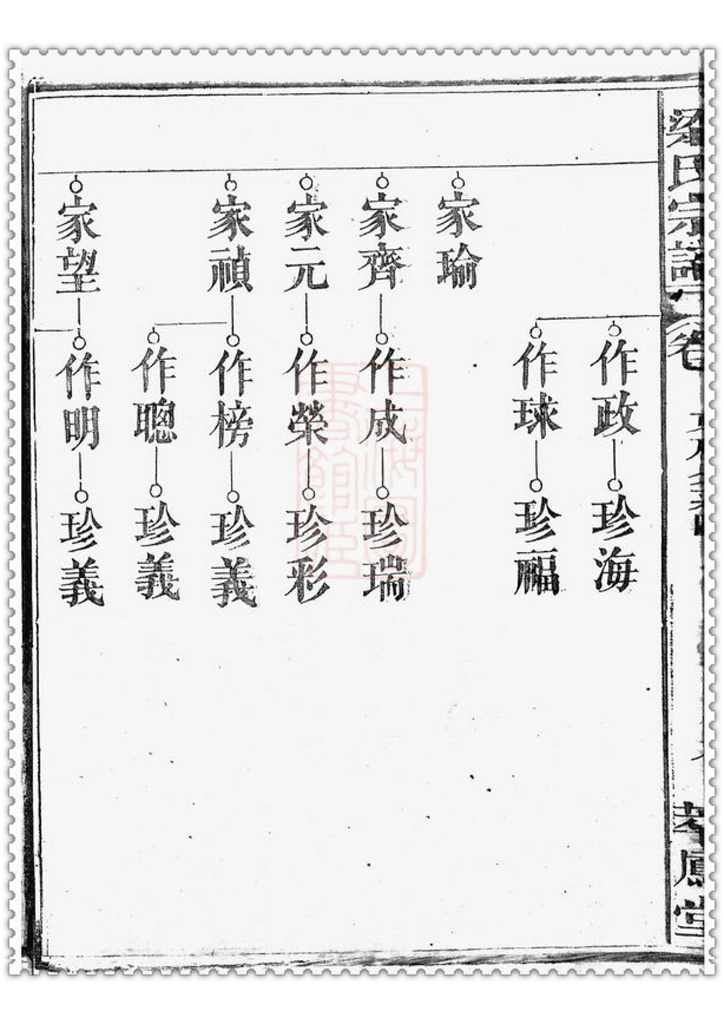 梁氏宗譜
卷
作政
珍海
作球
珍福
家瑜
家齊
作成
珍瑞
家元
作榮
珍彩
家禎
作榜
珍義
作聰
珍義
家望
作明
珍義
鳳堂